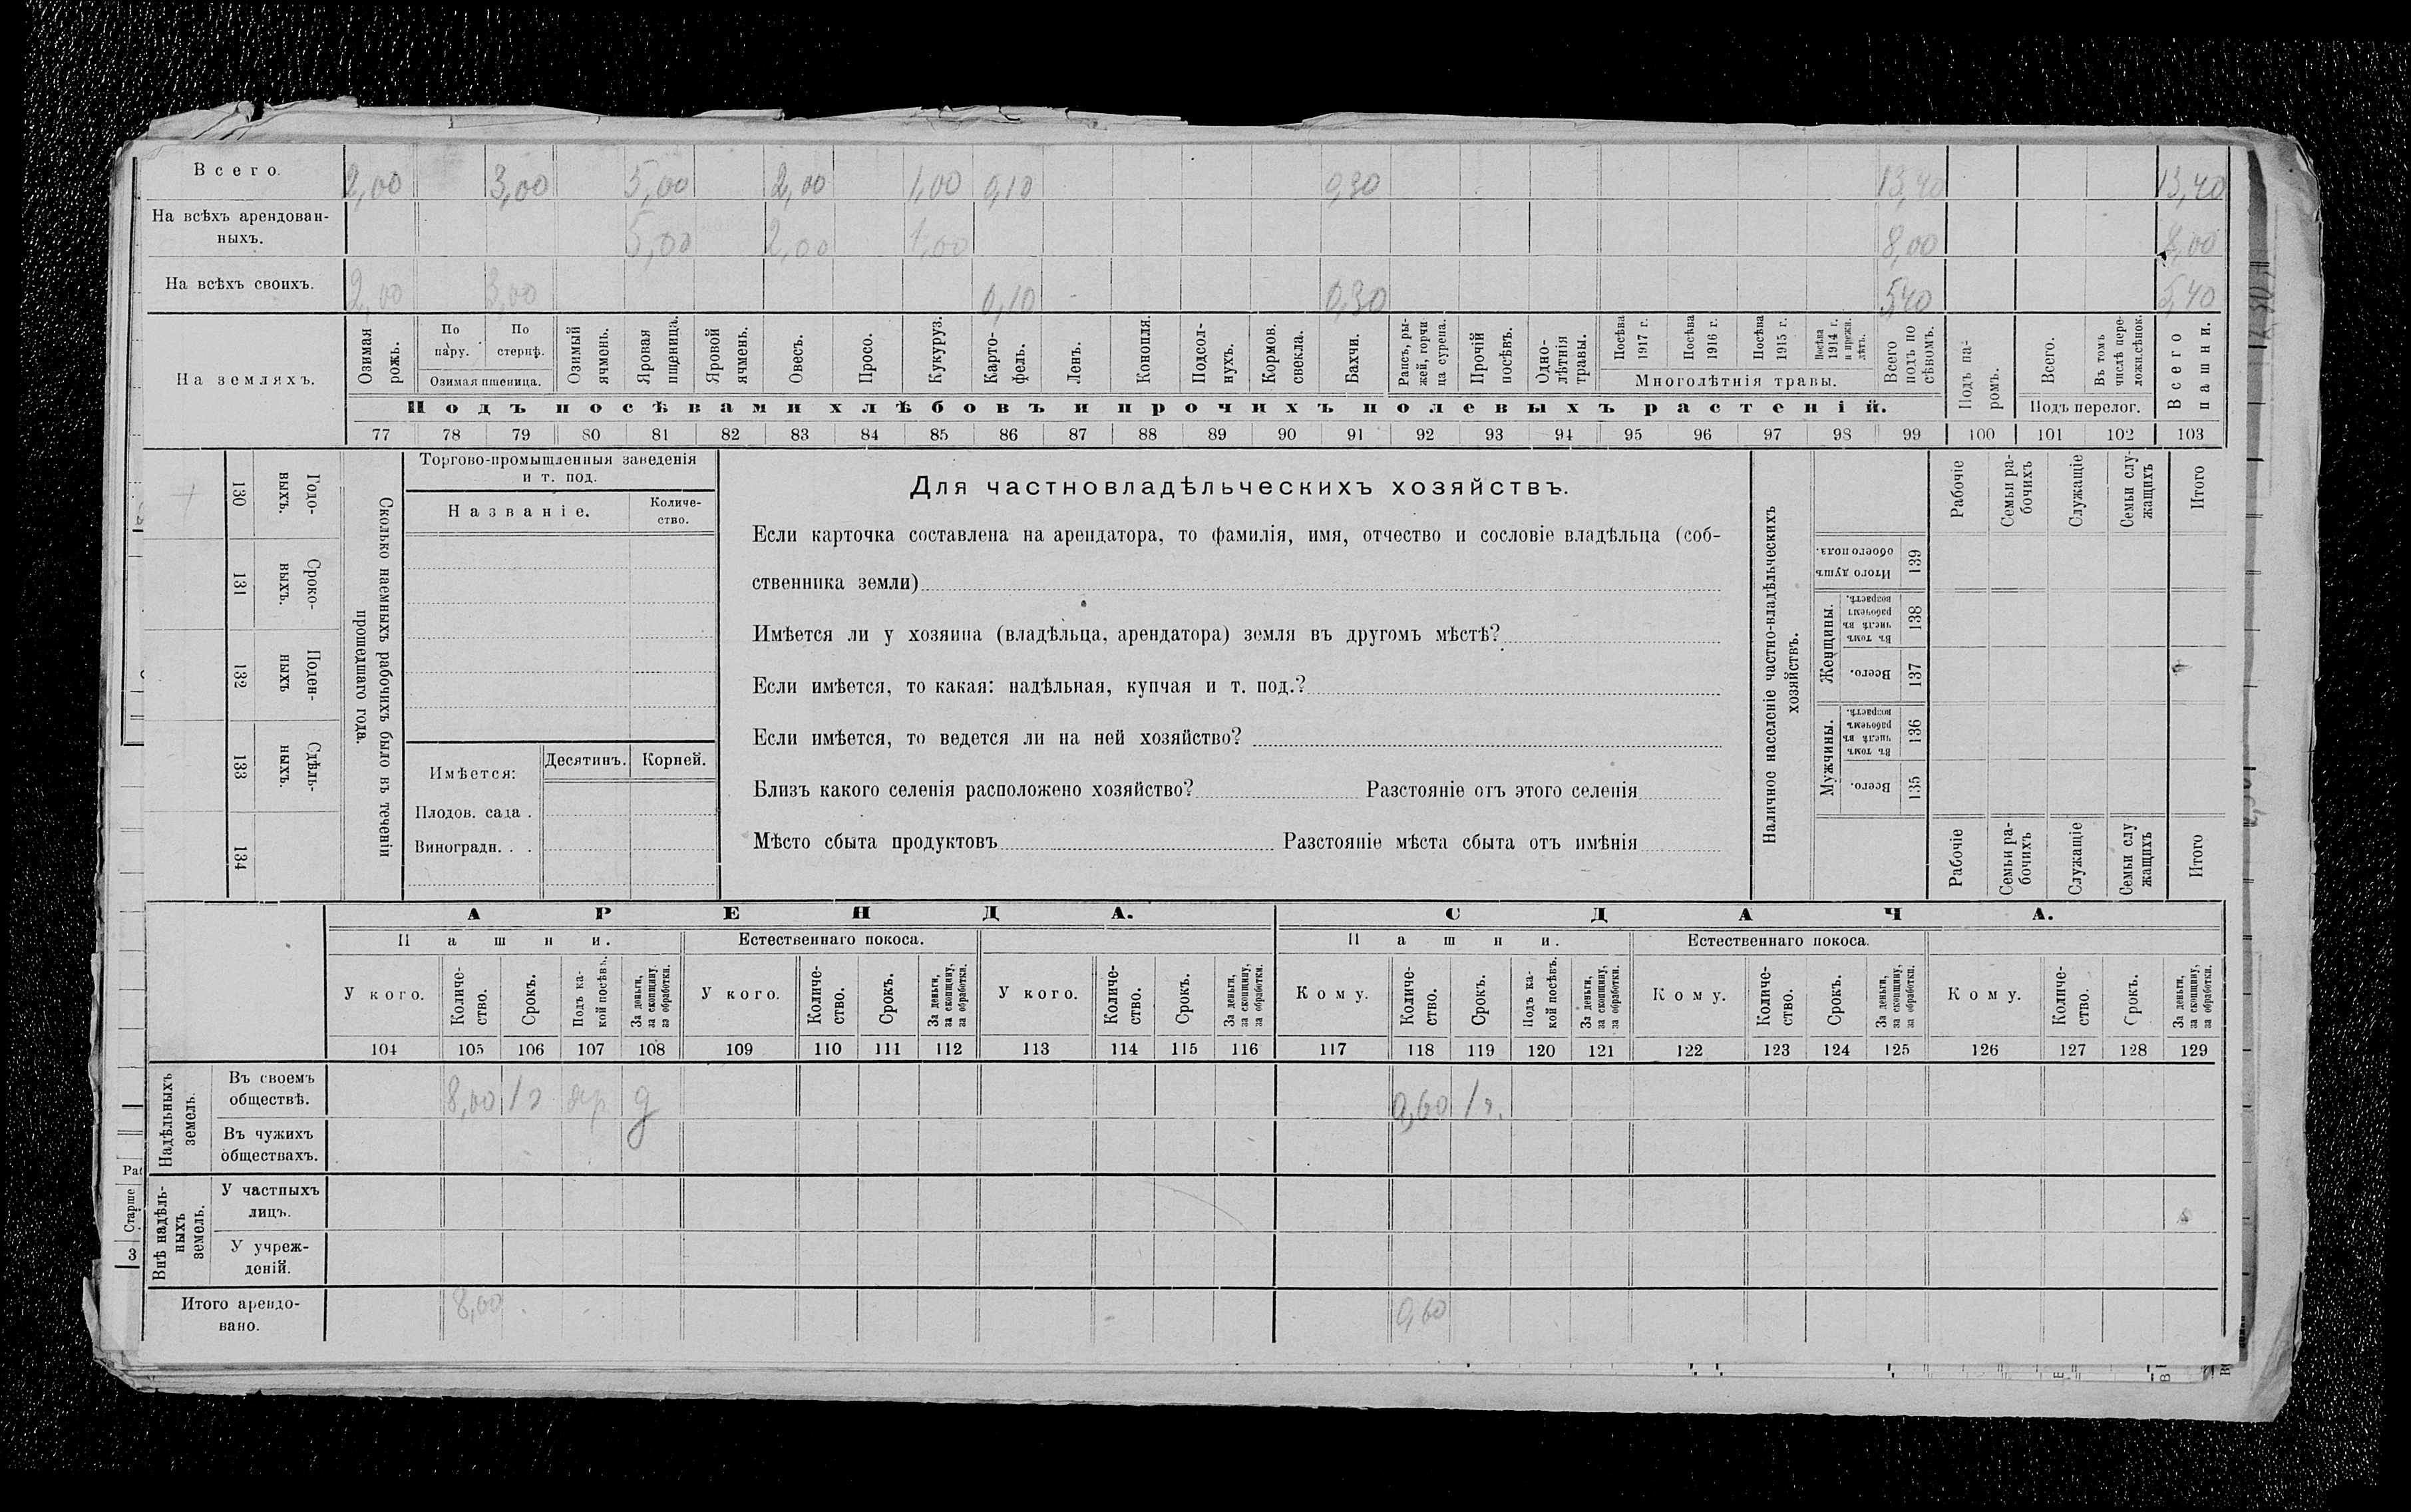 Всего. 2,00 3,00 5,00 2,00 1,00 0,10 0,30 13,40 13,40
На всѣхъ арендован-
ныхъ. 5,00 2,00 1,00 8,00 8,00
На всѣхъ своихъ. 2,00 3,00 0,10 0,30 5,40 5,40
На земляхъ.
Озимая рожь.
По пару.
По стернѣ.
Озимая пшеница.
Озимый ячмень.
Яровая пшеница.
Яровой ячмень.
Овесъ.
Просо.
Кукуруз.
Карто-
фель.
Ленъ.
Конопля.
Подсол-
нухъ.
Кормов. свекла.
Бахчи.
Рапсъ, ры-
жей, горчи
ца сурепа.
Прочій посѣвъ.
Одно-
лѣтнія
травы.
Посѣва 1917 г.
Посѣва 1916 г.
Посѣва 1915 г.
Посѣва 1914 г. и прежн. лѣтъ.
Многолѣтнія травы.
Всего подъ по
сѣвомъ.
Подъ па-
ромъ.
Всего.
Въ томъ числѣ пере-
ложн.сѣнок.
Подъ перелог.
Всего пашни.
Подъ посѣвами хлѣбовъ и прочихъ полевыхъ растеній.
77 78 79 80 81 82 83 84 85 86 87 88 89 90 91 92 93 94 95 96 97 98 99 100 101 102 103
Сколько наемныхъ рабочихъ было въ теченіи
прошедшаго года.
Годо-
выхъ.
130
Сроко-
выхъ.
131
Поден-
ныхъ
132
Сдѣль-
ныхъ.
133
134
Торгово-промышленныя заведенія
и т. под.
Названіе.
Количе-
ство.
Имѣется:
Десятинъ. Корней.
Плодов. сада .
Виноградн. . .
Для частновладѣльческихъ хозяйствъ.
Если карточка составлена на арендатора, то фамилія, имя, отчество и сословіе владѣльца (соб-
ственника земли)
Имѣется ли у хозяина (владѣльца, арендатора) земля въ другомъ мѣстѣ?
Если имѣется, то какая: надѣльная, купчая и т. под.?
Если имѣется, то ведется ли на ней хозяйство?
Близъ какого селенія расположено хозяйство? Разстояніе отъ этого селенія
Мѣсто сбыта продуктовъ Разстояніе мѣста сбыта отъ имѣнія
Наличное населеніе частно-владѣльческихъ
хозяйствъ.
Итого душъ
обоего пола.
139
Женщины.
Въ томъ числѣ въ рабочемъ возрастѣ.
138
Всего.
137
Мужчины.
Въ томъ числѣ въ рабочемъ возрастѣ.
136
Всего.
135
Рабочіе
Семьи ра-
бочихъ
Служащіе
Семьи слу-
жащихъ
Итого
Рабочіе
Семьи ра-
бочихъ
Служащіе
Семьи слу
жащихъ
Итого
АРЕНДА. СДАЧА.
Пашни. Естественнаго покоса. Пашни. Естественнаго покоса.
У кого.
Количе-
ство.
Срокъ.
Подъ ка-
кой посѣвъ.
За деньги,
за скопщину,
за обработки.
У кого.
Количе-
ство.
Срокъ.
За деньги,
за скопщину,
за обработки.
У кого.
Количе-
ство.
Срокъ.
За деньги,
за скопщину,
за обработки.
Кому.
Количе-
ство.
Срокъ.
Подъ ка-
кой посѣвъ.
За деньги,
за скопщину,
за обработки.
Кому.
Количе-
ство.
Срокъ.
За деньги,
за скопщину,
за обработки.
Кому.
Количе-
ство.
Срокъ.
За деньги,
за скопщину,
за обработки.
104 105 106 107 108 109 110 111 112 113 114 115 116 117 118 119 120 121 122 123 124 125 126 127 128 129
Надѣльныхъ
земель.
Въ своемъ
обществѣ. 8,00 1 г яр д 0,60 1 г.
Въ чужихъ
обществахъ.
Внѣ надѣль-
ныхъ
земель.
У частныхъ
лицъ.
У учреж-
деній.
Итого арендо-
вано. 8,00 0,60
Старше
3